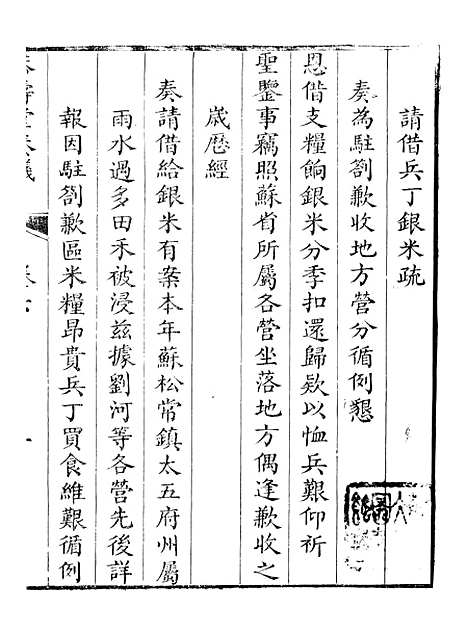 請借兵丁銀米疏
奏為駐劄歉收地方營分循例懇
恩借支糧餉銀米分季扣還歸欵以恤兵艱仰祈
聖鑒事竊照蘇省所屬各營坐落地方偶逢歉收之
歲歷經
奏請借給銀米有案本年蘇松常鎮太五府州屬
雨水過多田禾被浸茲據劉河等各營先後詳
報因駐劄歉區米糧昂貴兵丁買食維艱循例